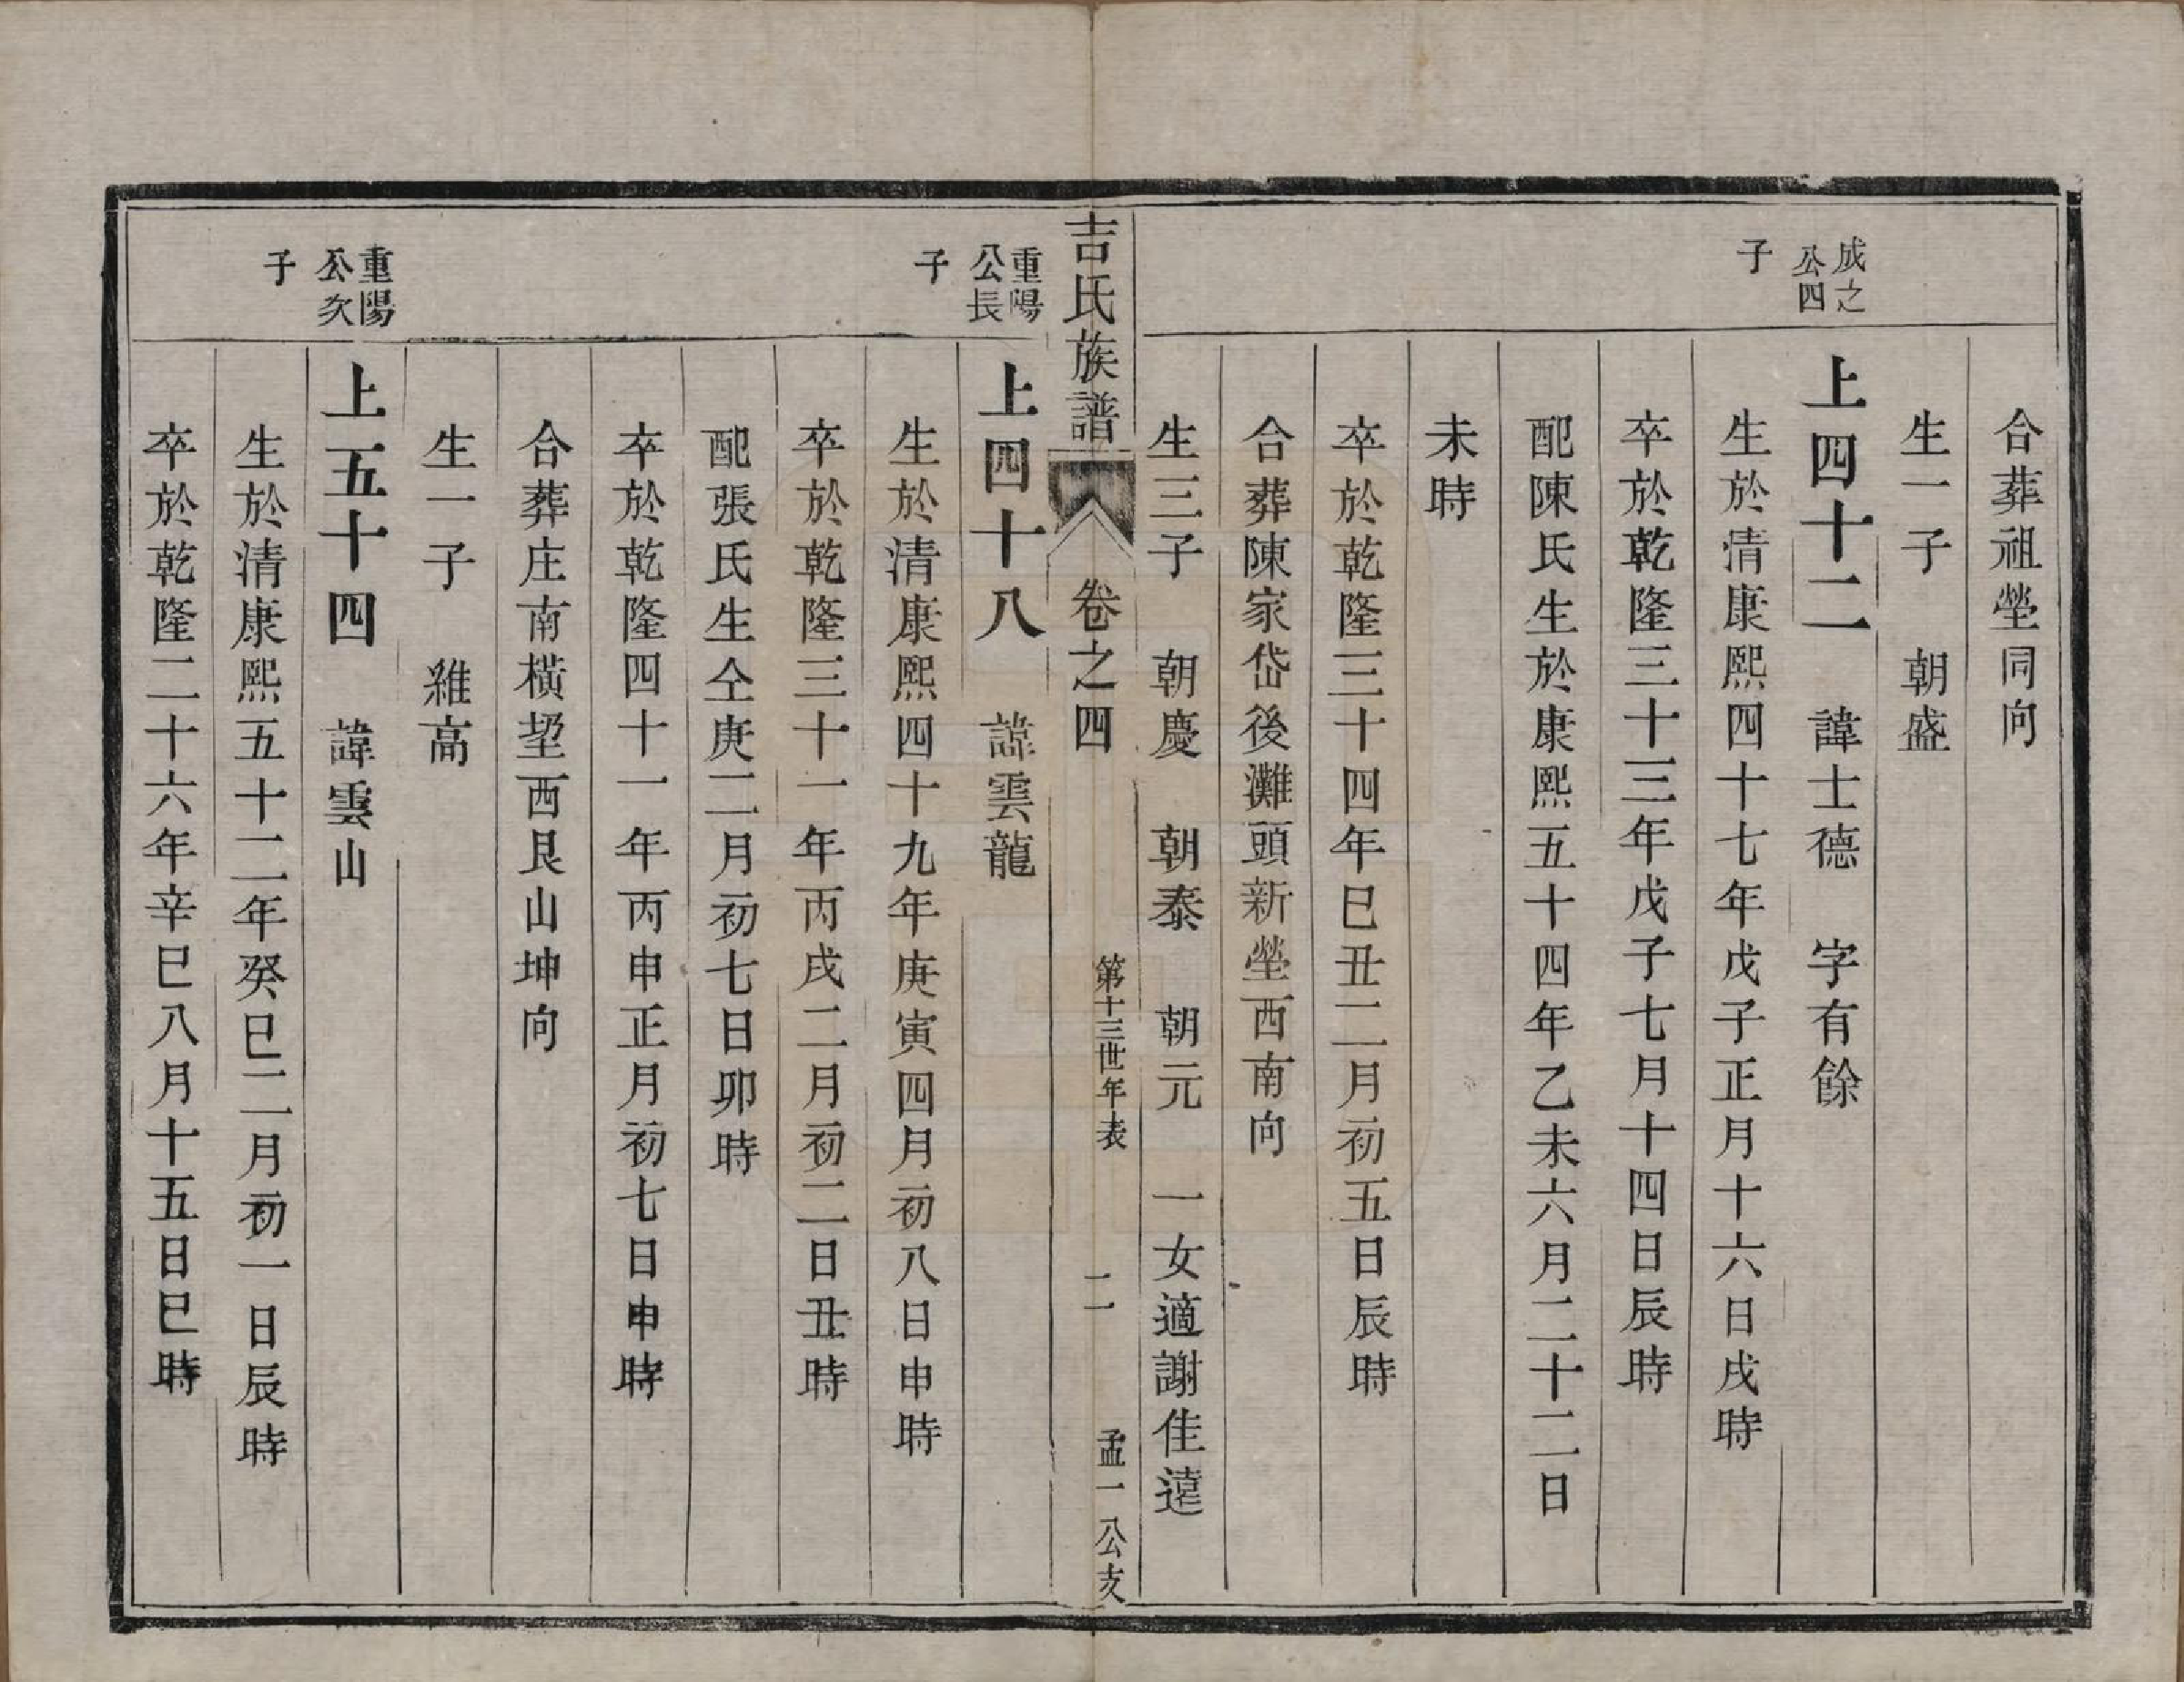 合葬祖塋同向
生一子　朝盛
成之公四子
上四十二　諱士德　字有餘
生於清康熙四十七年戊子正月十六日戌時
卒於乾隆三十三年戊子七月十四日辰時
配陳氏生於康熙五十四年乙未六月二十二日
未時
卒於乾隆三十四年巳丑二月初五日辰時
合葬陳家岱後灘頭新塋西南向
生三子　朝慶　朝泰　朝元　一女適謝佳逵
吉氏族譜　卷之四　第十三世年表　二　孟一公支
重陽公長子
上四十八　諱雲龍
生於清康熙四十九年庚寅四月初八日申時
卒於乾隆三十一年丙戌二月初二日丑時
配張氏生仝庚二月初七日卯時
卒於乾隆四十一年丙申正月初七日申時
合葬庄南橫埾西艮山坤向
生一子　維高
重陽公次子
上五十四　諱雲山
生於清康熙五十二年癸巳二月初一日辰時
卒於乾隆二十六年辛巳八月十五日巳時